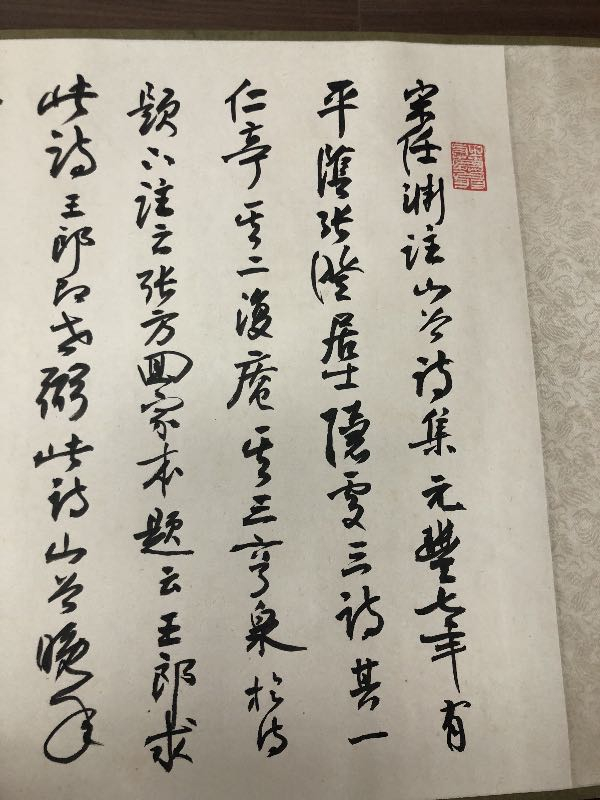 宋任渊註山谷诗集元豐七年有
平陰张澄居士隱處三诗其一
仁亭其二復庵其三亨泉於诗
题下註云张方回家本题云王郎求
此诗王郎即世弼此诗山谷晚年